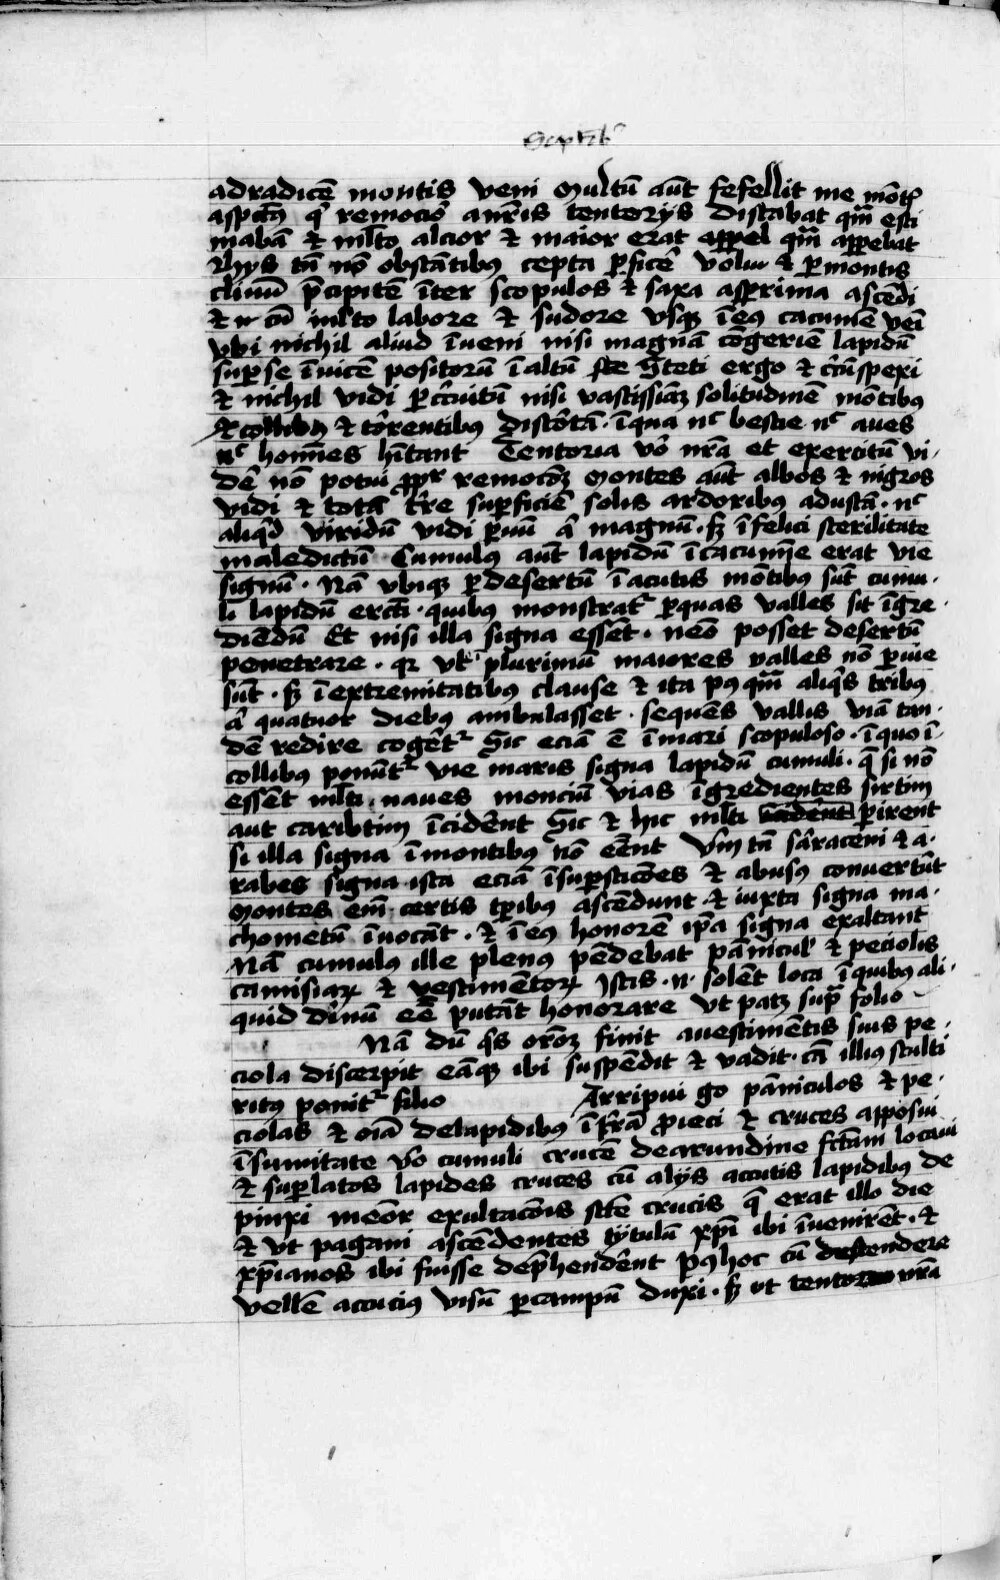 Septēb
adradicē montis veni Multū aūt fefellit me mōtꝭ
aspectꝰ qr remociꝰ a nr̄is tentorijs distabat qm̄ esti
mabā et ml̄to alcior et maior erat appel qm̄ apparebat
Hijs tn̄ nō obstātibꝰ cepta ꝑficē volui et ꝑ montis
cliuū p̄cipitē īter scopulos et saxa asperima ascēdi
et cū ml̄to labore et sudore vsqꝫ ī eꝰ cacumē vēi
vbi nichil aliud īueni nisi magnā cōgeriē lapidū
suꝑ se īuicē positorū ī altū Steti ergo et circūspexi
et nichil vidi ꝑ circuitū nisi vastissiaꝫ solitudinē mōtibꝰ
et collibꝰ et torrentibꝰ distortā · ī qua nc̄ bestie nc̄ aues
nc̄ homīes hītant Tentoria vo nr̄a et exercitū vi·
dē nō potui ꝓpr remocōꝫ Montes aūt albos et nigros
vidi et totā tr̄e suꝑficiē solis ardoribꝰ adustā · nc̄
aliqd viridū vidi ꝑuū aͧ magnū · sꝫ īfelici sterilitate
maledictū Cumulꝰ aūt lapidū ī cacumīe erat vie
signū · Nā vbiqꝫ ꝑ desertū ī acutis mōtibꝰ sūt cumu·
li lapidū erecti · quibꝰ monstratr ꝑ quas valles sit īgre·
diēdū Et nisi illa signa essēt · nēo posset desertū
penetrare · qr vt plurimū maiores valles nō ꝑuie
sūt · sꝫ ī extremitatibꝰ clause et ita pꝰ qm̄ aliqs tribꝰ
aͧ quatuor diebꝰ ambulasset · sequēs vallis viā tan·
dē redire cogētr Sic eciā ē ī mari scopuloso · ī quo ī
collibꝰ ponūtr vie maris signa lapidū cumuli · q̄ si nō
essēt ml̄ti · naues monciū vias īgredientes sirtim
aut caribtim īcidēnt Sic et hic ml̄ti ꝑirent
si illa signa ī montibꝰ nō eēnt Vm̄ tn̄ sarraceni et a·
rabes signa ista eciā ī suꝑsticōes et abusꝰ conuertūt
Montes em̄ certis tꝑibꝰ ascēdunt et iuxta signa ma·
chometū īuocāt · et ī eꝰ honorē ipa signa exaltant
Nā cumulꝰ ille plenꝰ pēdebat pānicul et peciolis
camisiaꝝ et vestimētoꝝ Istis · n · solēt loca ī quibꝰ ali·
quid dīnū eē putāt honorare vt patꝫ supͣ folio
Nā dū qs orōꝫ finit a vestimētis suis pe·
ciola discerpit eāqꝫ ibi suspēdit et vadit · cā illiꝰ stulti
ritꝰ ponitr folio Arripui go pāniculos et pe·
ciolas et oīa de lapidibꝰ ī tr̄rā ꝓieci et cruces apposui
ī sumitate vo cumuli crucē de arundine fctam locaui
et suꝑ latos lapides cruces cū alijs acutis lapidibꝰ de
pinxi mēor exultacōis scte crucis q̄ erat illo die
et vt pagani ascēdentes tytulū xp̄i ibi īuenirēt · et
xp̄ianos ibi fuisse dep̄hendēnt Pꝰ hoc cū descendere
vellē acuciꝰ visū ꝑ campū duxi · sꝫ vt tentoria nr̄a